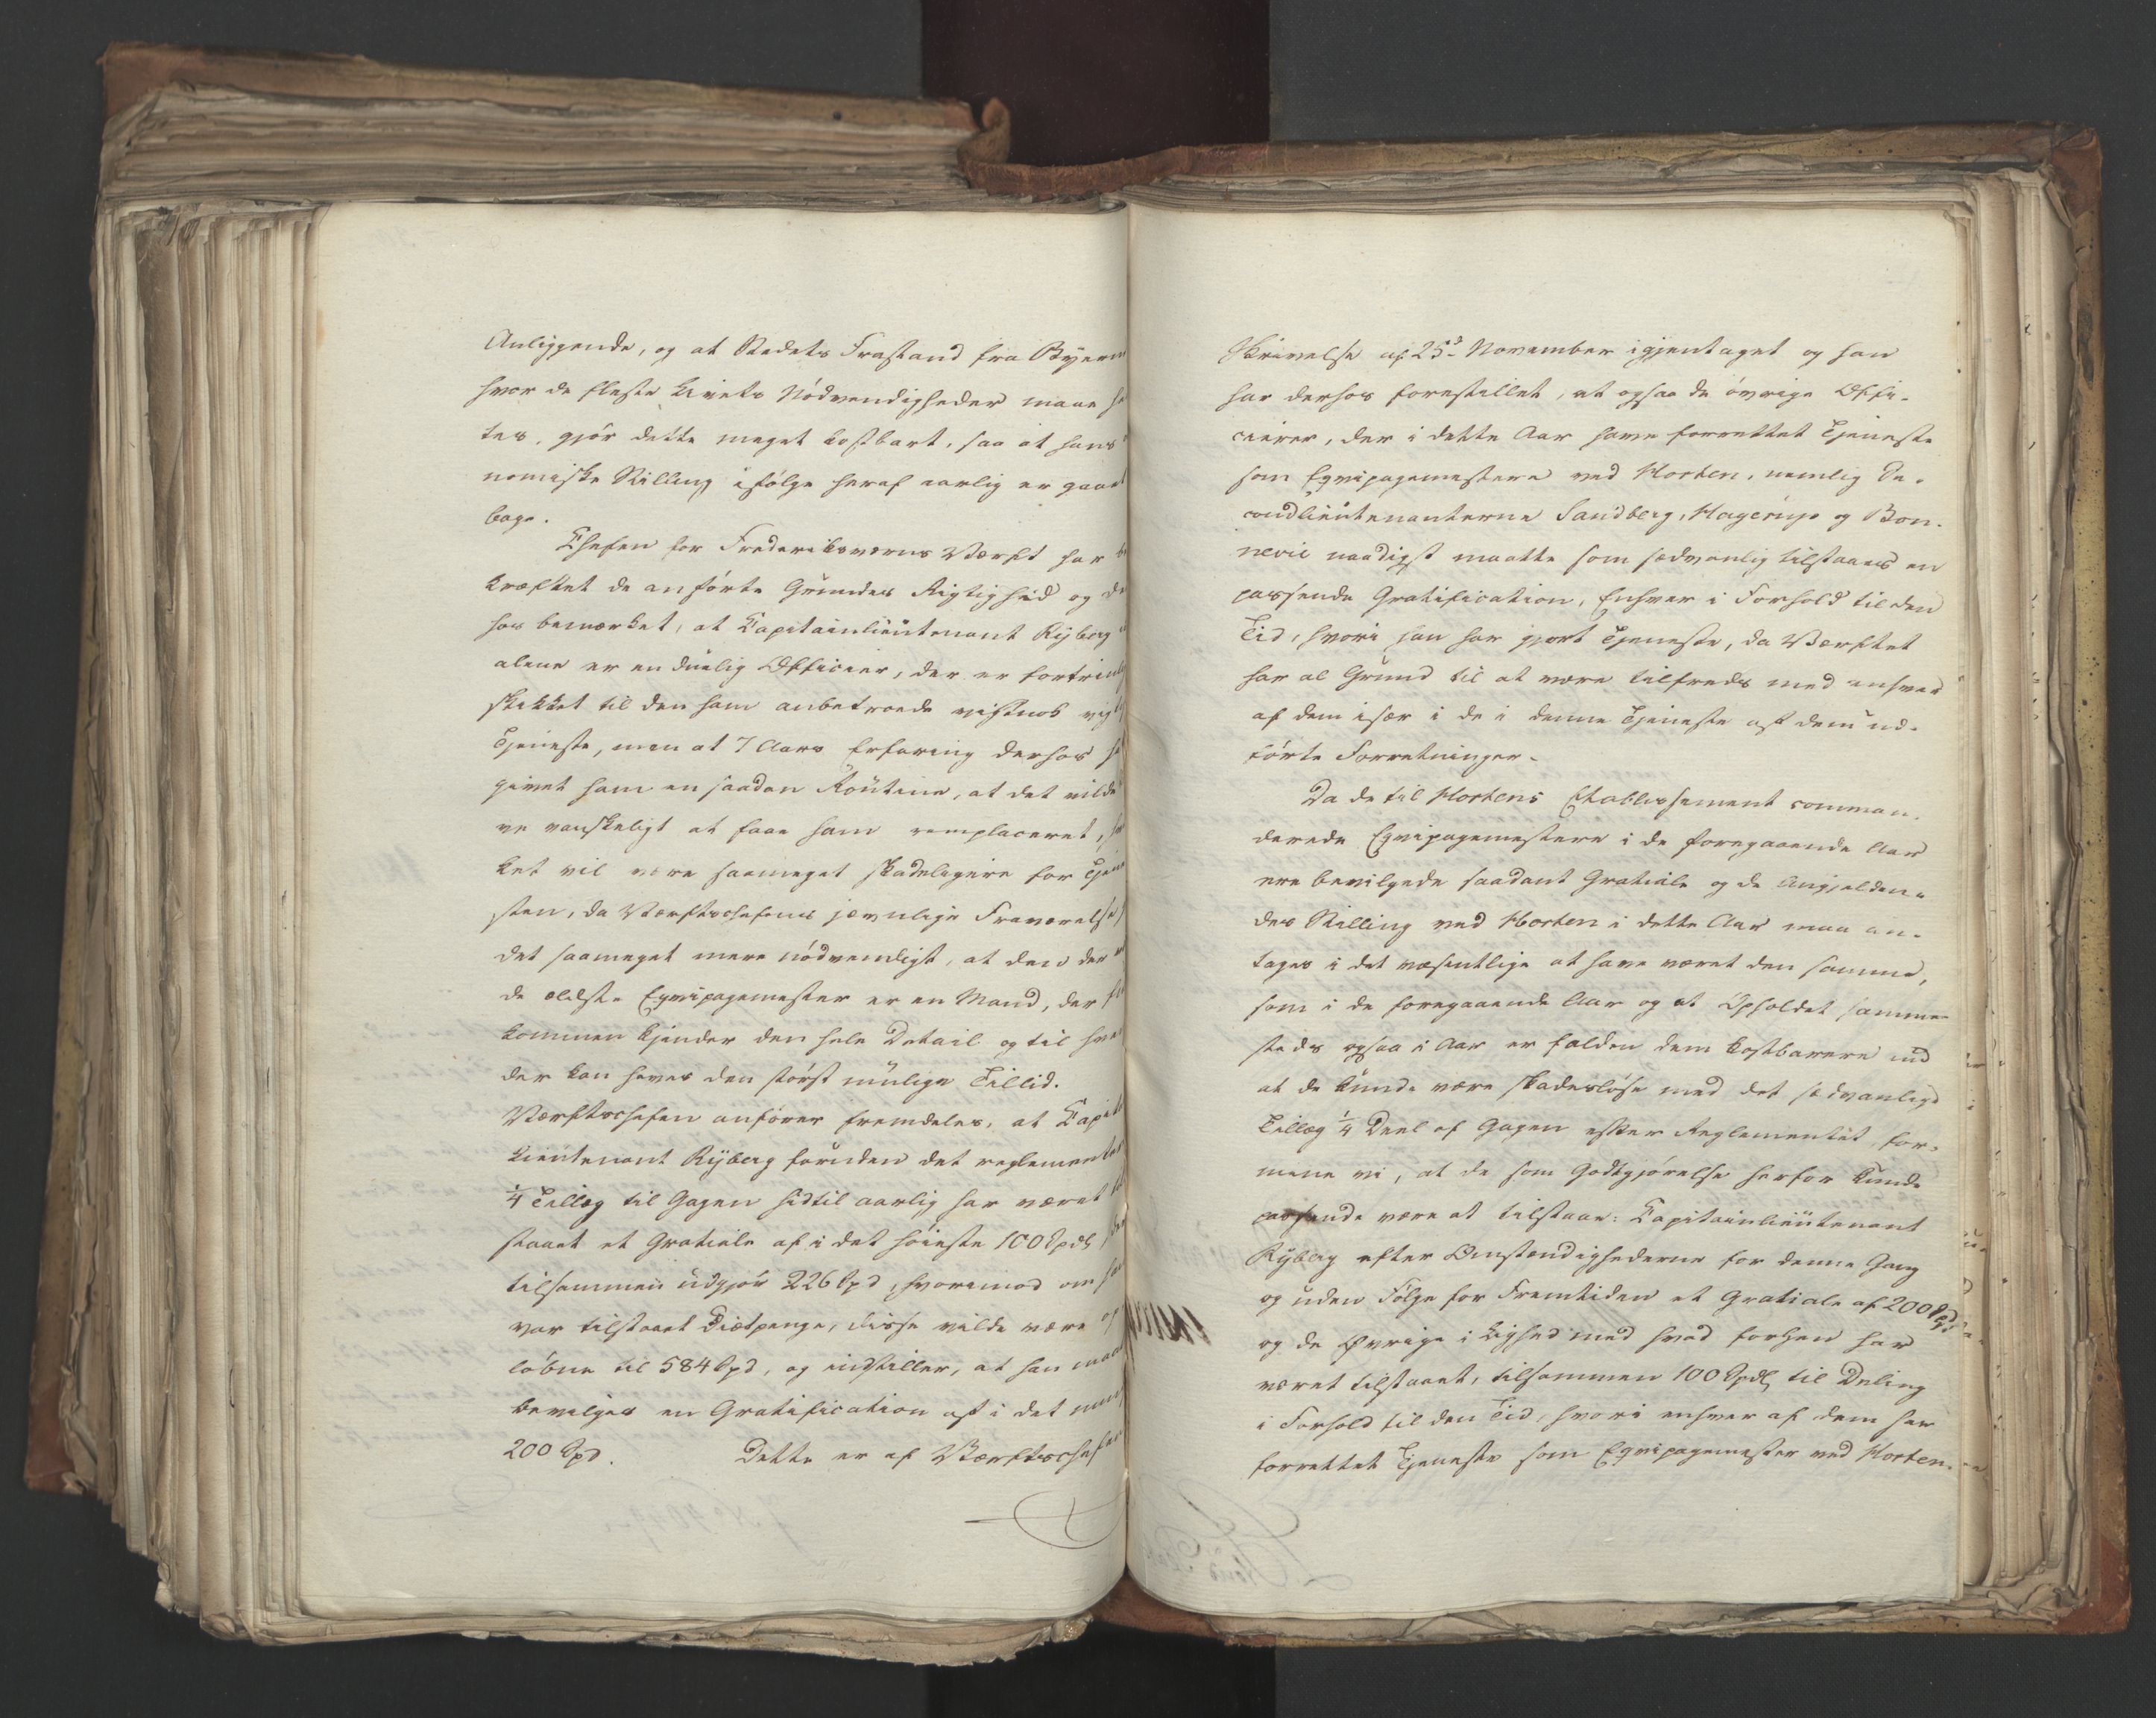 Anliggende, og at Stedets Frastand fra Byerne
hvor de fleste Livets Nödvendigheder maae he
tes, gjör dette meget kostbart, saa at hans
nomiske Stilling ifölge heraf aarlig er gaaet
bage.
Chefen for Frederiksværns Værft har be
kræftet de anförte Grundes Rigtighed og de
hos bemærket, at Capitainlieutenant Ryberg
alene er en duelig Officier, der er fortrinlig
skikket til den ham anbetroede vistnok vigtig
Tjeneste, men at 7 Aars Erfaring derhos ha
givet ham en saadan Routine, at det vilde
ve vanskeligt at faae ham remplaceret, hv
ket vil være saameget skadeligere for Tjene
sten, da Værftschefens jævnlige Fraværelse
det saameget mere nödvendigt, at den der
de ældste Eqvipagemester er en Mand, der ful
kommen kjender den hele Detail og til hvem
der kan haves den störst mulige Tillid.
Værftschefen anförer fremdeles, at Capit
lieutenant Ryberg foruden det reglementer
1/4 Tillæg til Gagen hidtil aarlig har været til
staaet et Gratiale af i det höieste 100 Spdlr, der
tilsammen udgjör 226 Spd, hvorimod om ha
var tilstaaet Diætpenge, disse vilde være op
löbne til 584 Spd, og indstiller, at han maa
bevilges en Gratification af i det mind
200 Spd. Dette er af Værftschefen
Skrivelse af 25de November igjentaget og han
har derhos forestillet, at ogsaa de övrige Offi-
cierer, der i dette Aar have forrettet Tjeneste
som Eqvipagemestere ved Horten, nemlig Se-
condlieutenanterne Sandberg, Hagerup og Bon-
nevie naadigst maatte som sædvanlig tilstaaes en
passende Gratification, Enhver i Forhold til den
Tid, hvori han har gjort Tjeneste, da Værftet
har al Grund til at være tilfreds med enhver
af dem især i de i denne Tjeneste af dem ud-
förte Forretninger.
Da de til Hortens Etablissement comman-
derede Eqvipagemestere i de foregaaende Aar
ere bevilgede saadant Gratiale og de Angjælden-
des Stilling ved Horten i dette Aar maa an-
tages i det væsentlige at have været den samme,
som i de foregaaende Aar og at Opholdet samme-
steds ogsaa i Aar er falden dem kostbarere end
at de kunde være skadeslöse med det sædvanlige
Tillæg 1/4 Deel af Gagen efter Reglementet, for-
mene vi, at de som Godtgjörelse herfor kunde
passende være at tilstaae: Capitainlieutenant
Ryberg efter Omstændighederne for denne Gang
og uden Fölge for Fremtiden et Gratiale af 200 Spd
og de Övrige i Lighed med hvad forhen har
været tilstaaet, tilsammen 100 Spdlr til Deling
i Forhold til den Tid, hvori enhver af dem har
forrettet Tjeneste som Eqvipagemester ved Horten.